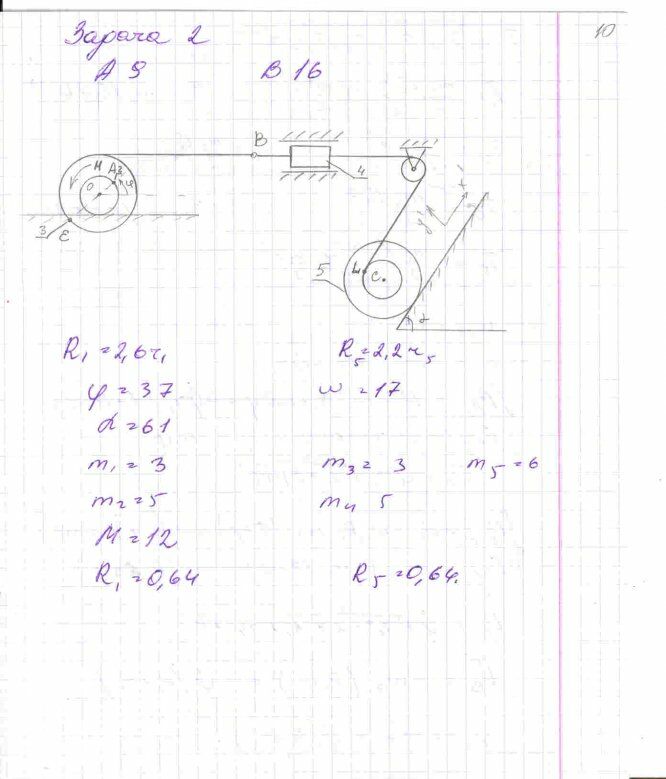 10
Задача 2
А 9 В 16
B
M A
O φ
4
3 E
y' x'
5 L C
α
R₁ = 2,6r₁ R₅ = 2,2r₅
φ = 37 ω = 17
α = 61
m₁ = 3 m₃ = 3 m₅ = 6
m₂ = 5 m₄ 5
M = 12
R₁ = 0,64 R₅ = 0,64.